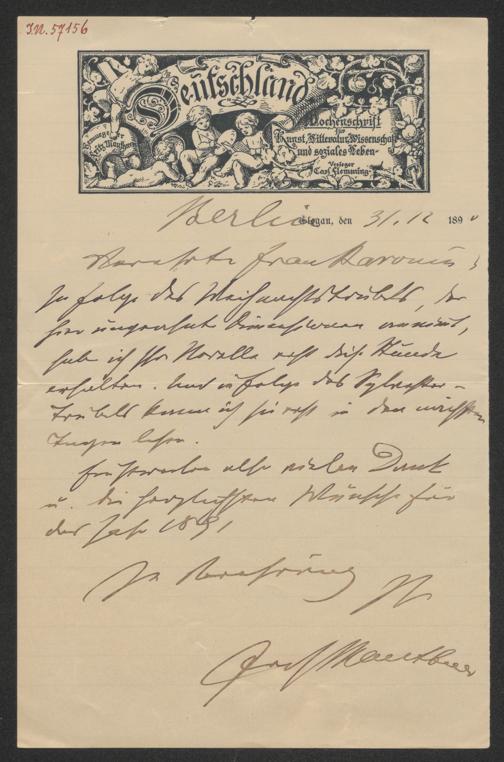 I.N. 57156
Deutschland
Wochenschrift
für
Kunst, Litteratur, Wissenschaft
und soziales Leben
Herausgeber
Fritz Mauthner
Verleger
Carl Flemming
Berlin Glogau, den 31/12 1890
Verehrte Frau Baronin,
zu folge des Weihnachtstrubels, der
hier ungeahnte Dimensionen annimt,
hab ich Ihre Novelle erst diese Stunde
erhalten. Und in folge des Sylvester-
trubels kann ich sie erst in den nächsten
Tagen lesen.
Einstweilen also vielen Dank
u. die herzlichsten Wünsche für
das Jahr 1891
In Verehrung
Ihr
Fritz Mauthner